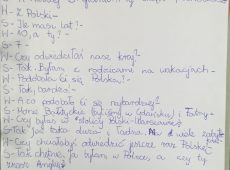 W- Z Polski-
S- Ile masz lat?-
W- 10, a ty?-
S- 7-
W- Czy odwiedziłaś nasz kraj?-
S- Tak. Byłam z rodzicami na wakacjach-
W- Podobała Ci się Polska?-
S- Tak, bardzo-
W- A co podobało ci się najbardziej?
S- Morze Bałtyckie byliśmy w Gdańsku i Tatry-
W- Czy byłaś w stolicy Polski - Warszawie?
S- Tak jak taka duża i ładna. Ma wiele
W- Czy chciałabyś odwiedzić jeszcze raz Polskę?
S- Tak chętnie, ja byłam w Polsce, a czy ty